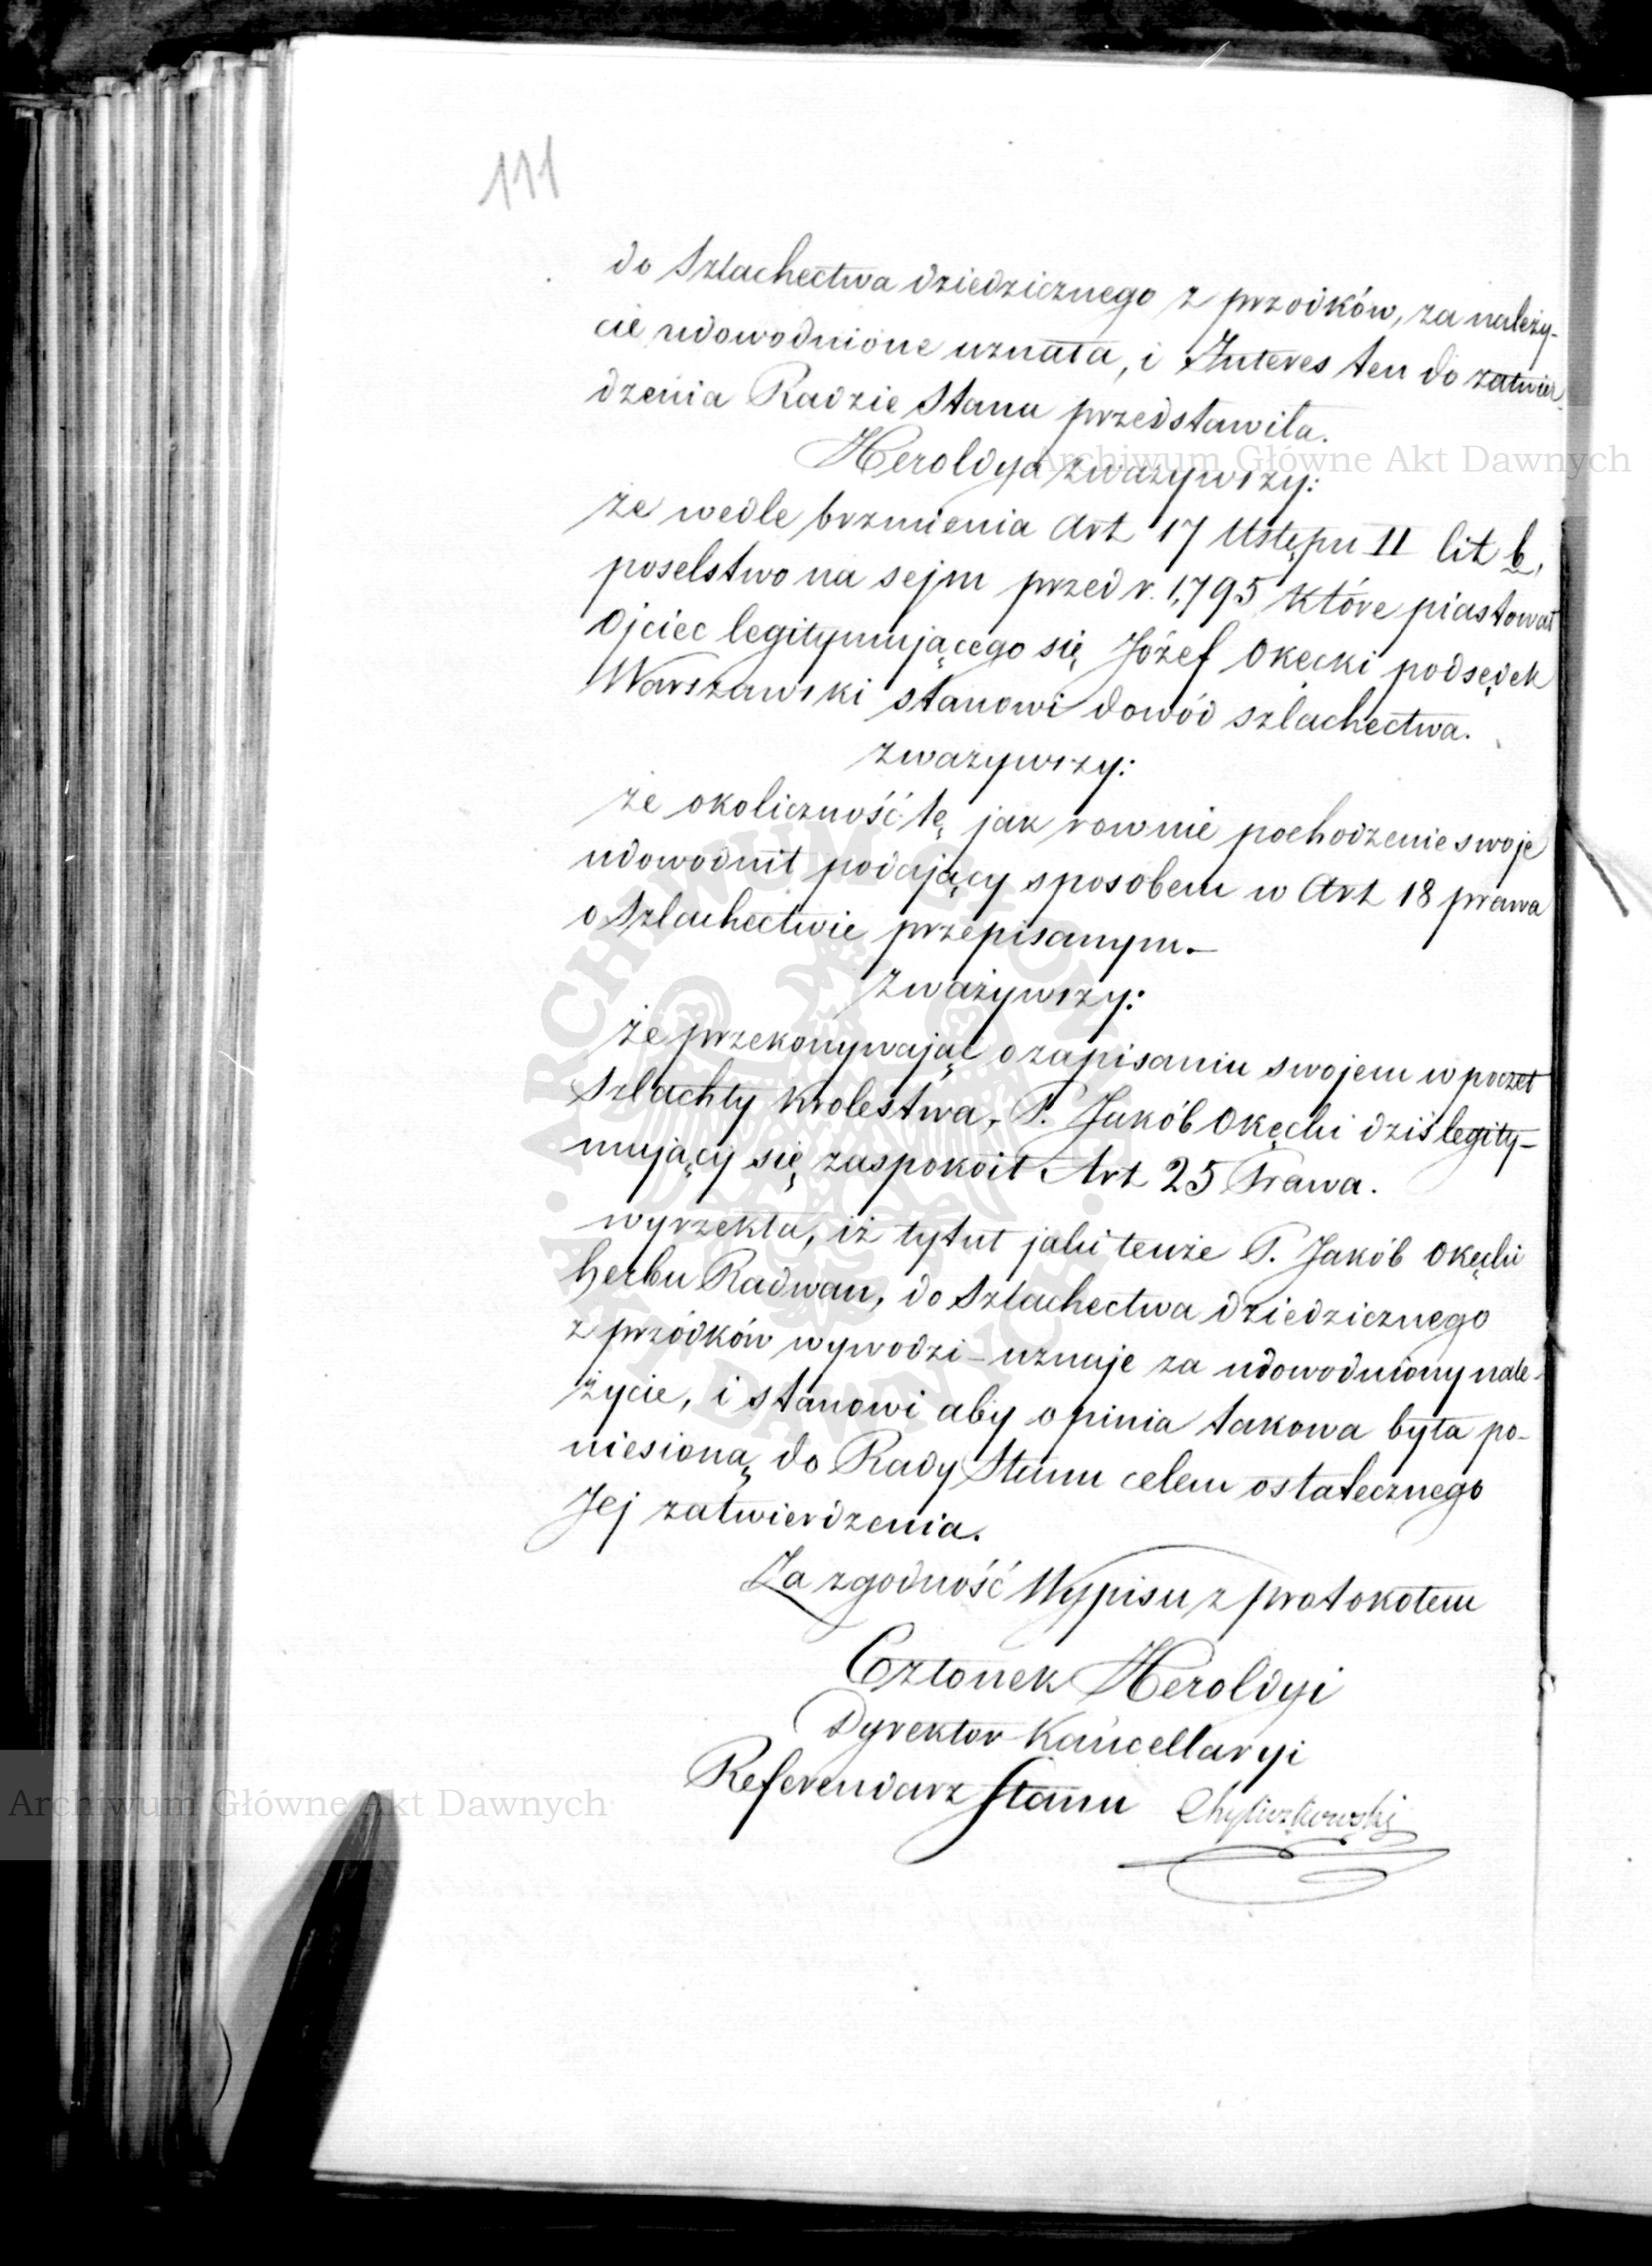 111
do Szlachectwa dziedzicznego z przodków, za należy-
cie udowodnione uznała, i Interes ten do zatwier-
dzenia Radzie Stanu przedstawiła.
Heroldya zważywszy:
że wedle brzmienia Art 17 Ustępu II lit b,
poselstwo na sejm przed r. 1,795 które piastował
Ojciec legitymującego się Józef Okęcki podsędek
Warszawski stanowi dowód szlachectwa.
zważywszy:
że okoliczność tę jak rownie pochodzenie swoje
udowodnił podający sposobem w Art 18 prawa
o Szlachectwie przepisanym.—
Zważywszy:
że przekonywając o zapisaniu swojem w poczet
Szlachty Krolestwa, P. Jakób Okęcki dziś legity-
mujący się zaspokoił Art 25 Prawa.
wyrzekła, iż tytuł jaki tenże P. Jakób Okęcki
herbu Radwan, do Szlachectwa dziedzicznego
z przódków wywodzi – uznaje za udowodniony nale-
życie, i stanowi aby opinia takowa była po-
niesioną do Rady Stanu celem ostatecznego
Jej zatwierdzenia.
Za zgodność Wypisu z protokołem
Członek Heroldyi
Dyrektor Kancellaryi
Referendarz Stanu
Archiwum Główne Akt Dawnych
Archiwum Główne Akt Dawnych
ARCHIWUM GŁÓWNE AKT DAWNYCH